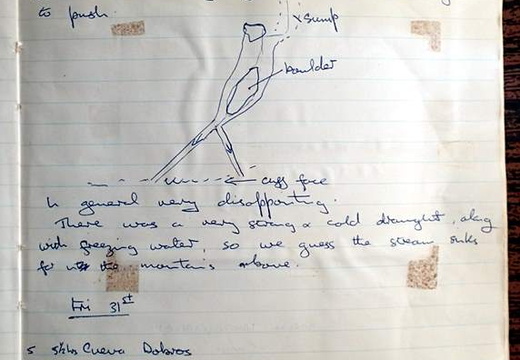 to push.
x sump
boulder
cliff face
In general very disappointing.
There was a very strong & cold draught, along
with freezing water, so we guess the stream sinks
for the mountains above.
Fri 31st
Cueva Dobros